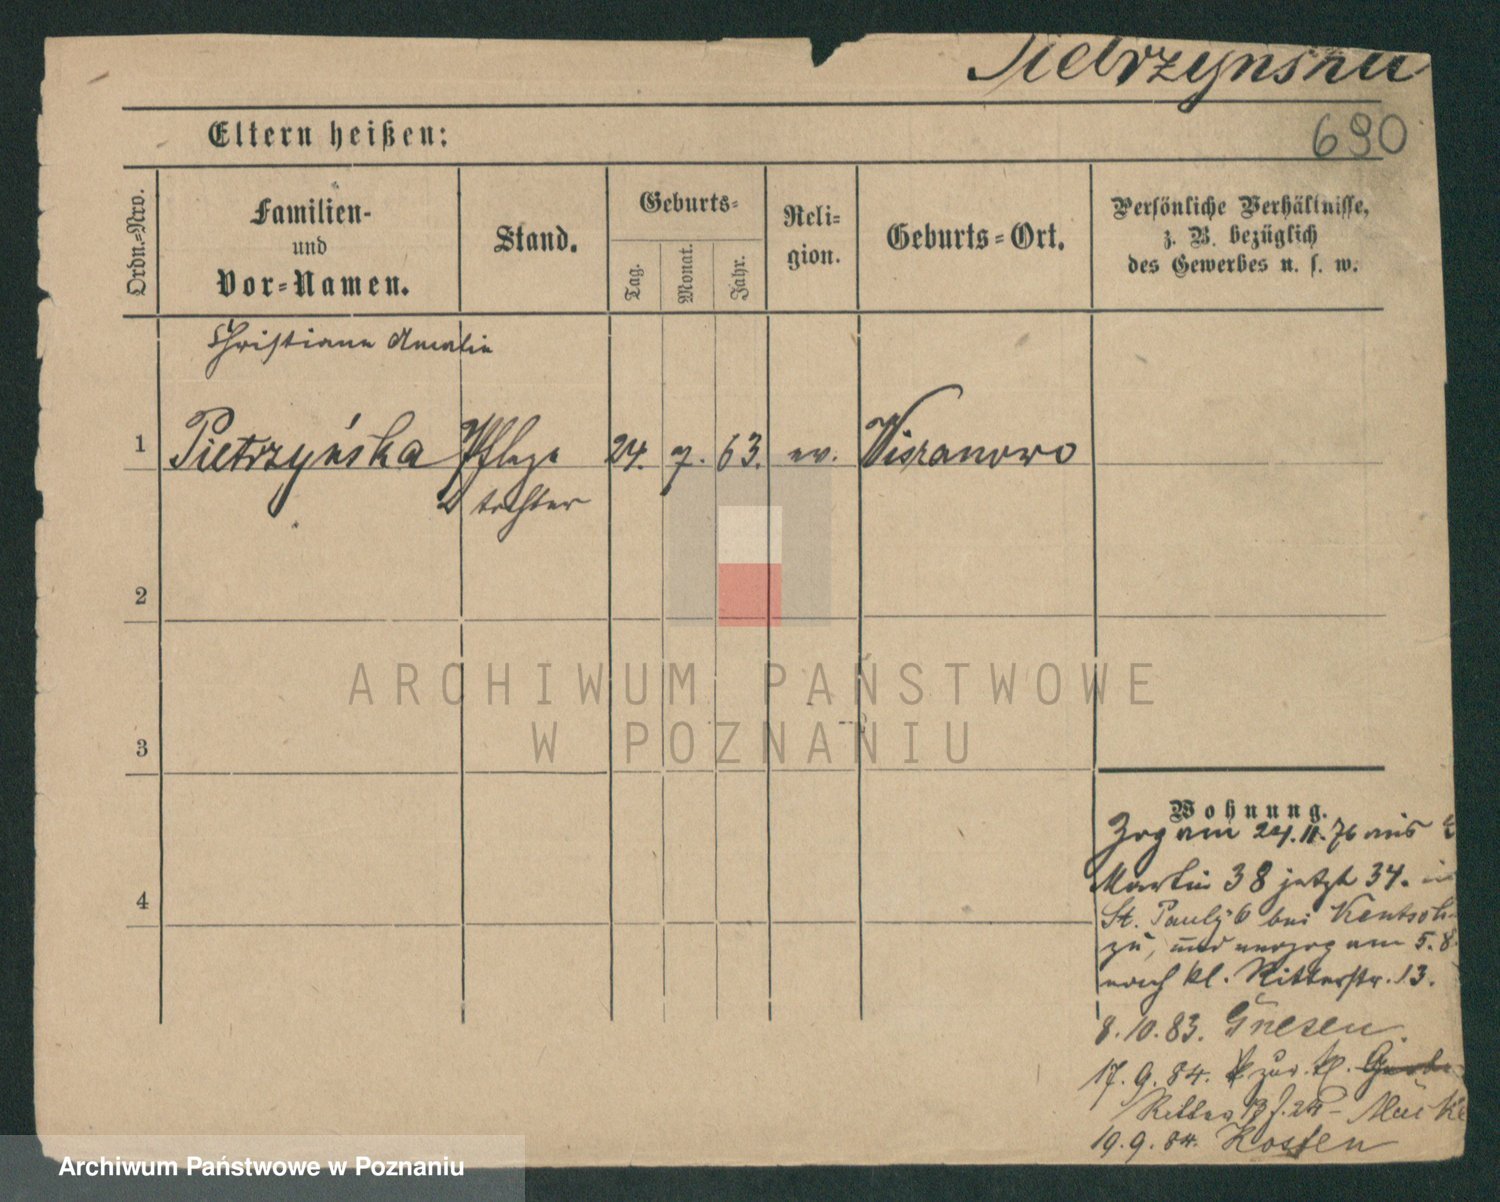 Pietrzynska
690
Eltern heißen:
Ordn.-Nro.
Familien-
und
Vor-Namen.
Stand.
Geburts-
Tag.
Monat.
Jahr.
Reli-
gion.
Geburts-Ort.
Persönliche Verhältnisse,
z. B. bezüglich
des Gewerbes u. s. w.
Christiane Amalie
1 Pietrzyńska Pflege 24. 7. 63. ev.
tochter
2
3
4
ARCHIWUM PAŃSTWOWE
W POZNANIU
Wohnung.
Zog am 24.11.76 aus
Martin 38 jetzt 34.
St. Pauly 6 bei
zu, und verzog am 5.8.
nach kl. Ritterstr. 13.
8.10.83. Gnesen.
17.9.84. zur. kl.
Ritter
19.9.84. Kosten
Archiwum Państwowe w Poznaniu